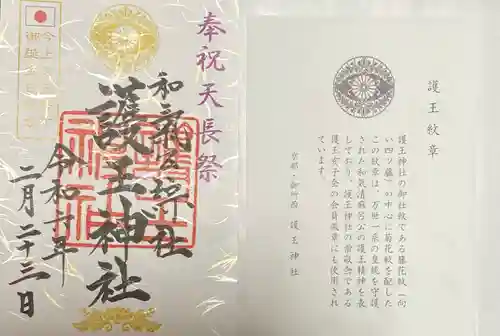 護王紋章
護王神社の御社紋である藤花紋(向
い四ツ藤)の中心に菊花紋を配した
この紋章は、万世一系の皇統を守護
された和気清麻呂公の護王精神を表
しており、護王神社の崇敬会である
護王亥子会の会員徽章にも使用され
ています。
京都・御所西 護王神社
奉祝天長祭
護王神社
令和七年
二月二十三日
今上
御誕